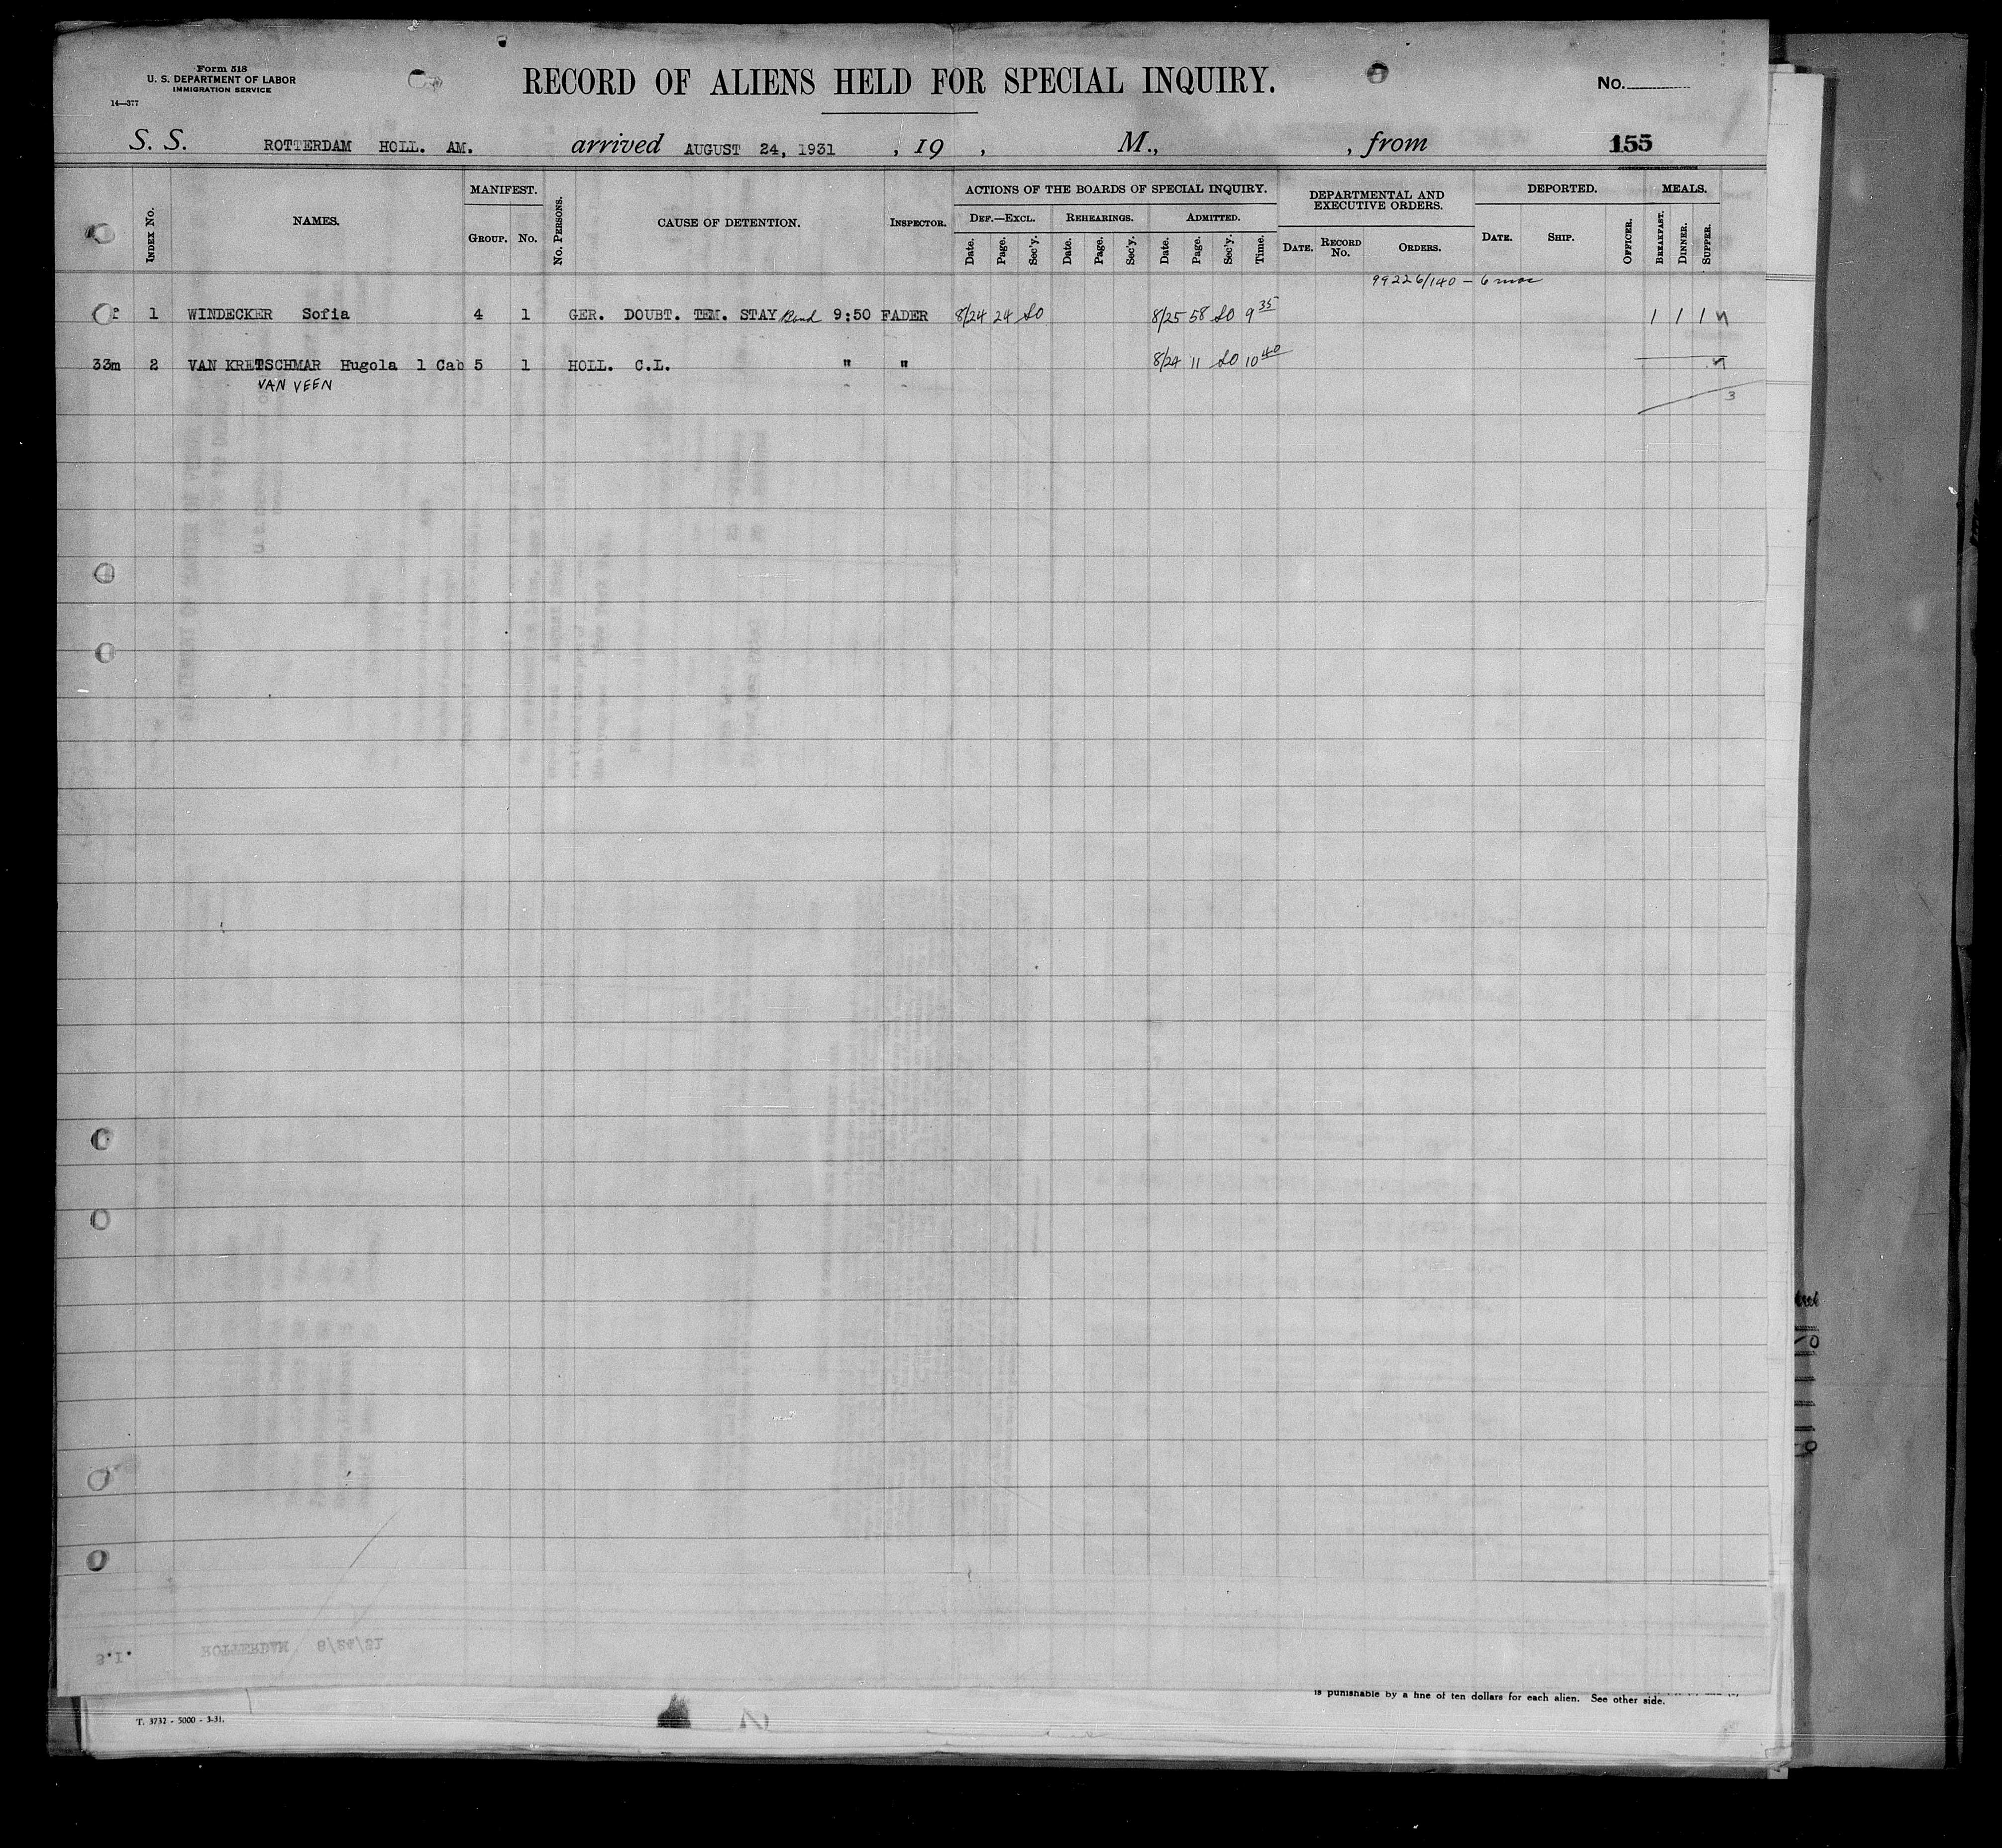 Form 518
U. S. DEPARTMENT OF LABOR
IMMIGRATION SERVICE
14—377
RECORD OF ALIENS HELD FOR SPECIAL INQUIRY.
No.
S. S. ROTTERDAM HOLL. AM. arrived AUGUST 24, 1931 , 19 , M., , from 155
INDEX No. NAMES. MANIFEST. GROUP. No. No. PERSONS. CAUSE OF DETENTION. INSPECTOR. ACTIONS OF THE BOARDS OF SPECIAL INQUIRY. DEF.—EXCL. Date. Page. Sec'y. REHEARINGS. Date. Page. Sec'y. ADMITTED. Date. Page. Sec'y. Time. DEPARTMENTAL AND EXECUTIVE ORDERS. DATE. RECORD No. ORDERS. DEPORTED. DATE. SHIP. OFFICER. MEALS. BREAKFAST. DINNER. SUPPER.
99226/140 - 6 mos
1 WINDECKER Sofia 4 1 GER. DOUBT. TEM. STAY Bond 9:50 FADER 8/24 24 8/25 58 9 35 1 1 1
33m 2 VAN KRETSCHMAR Hugola 1 Cab 5 1 HOLL. C.L. " " 8/24 11 10 40
VAN VEEN
3
S.I. ROTTERDAM 8/24/31
is punishable by a fine of ten dollars for each alien. See other side.
T. 3732 - 5000 - 3-31.